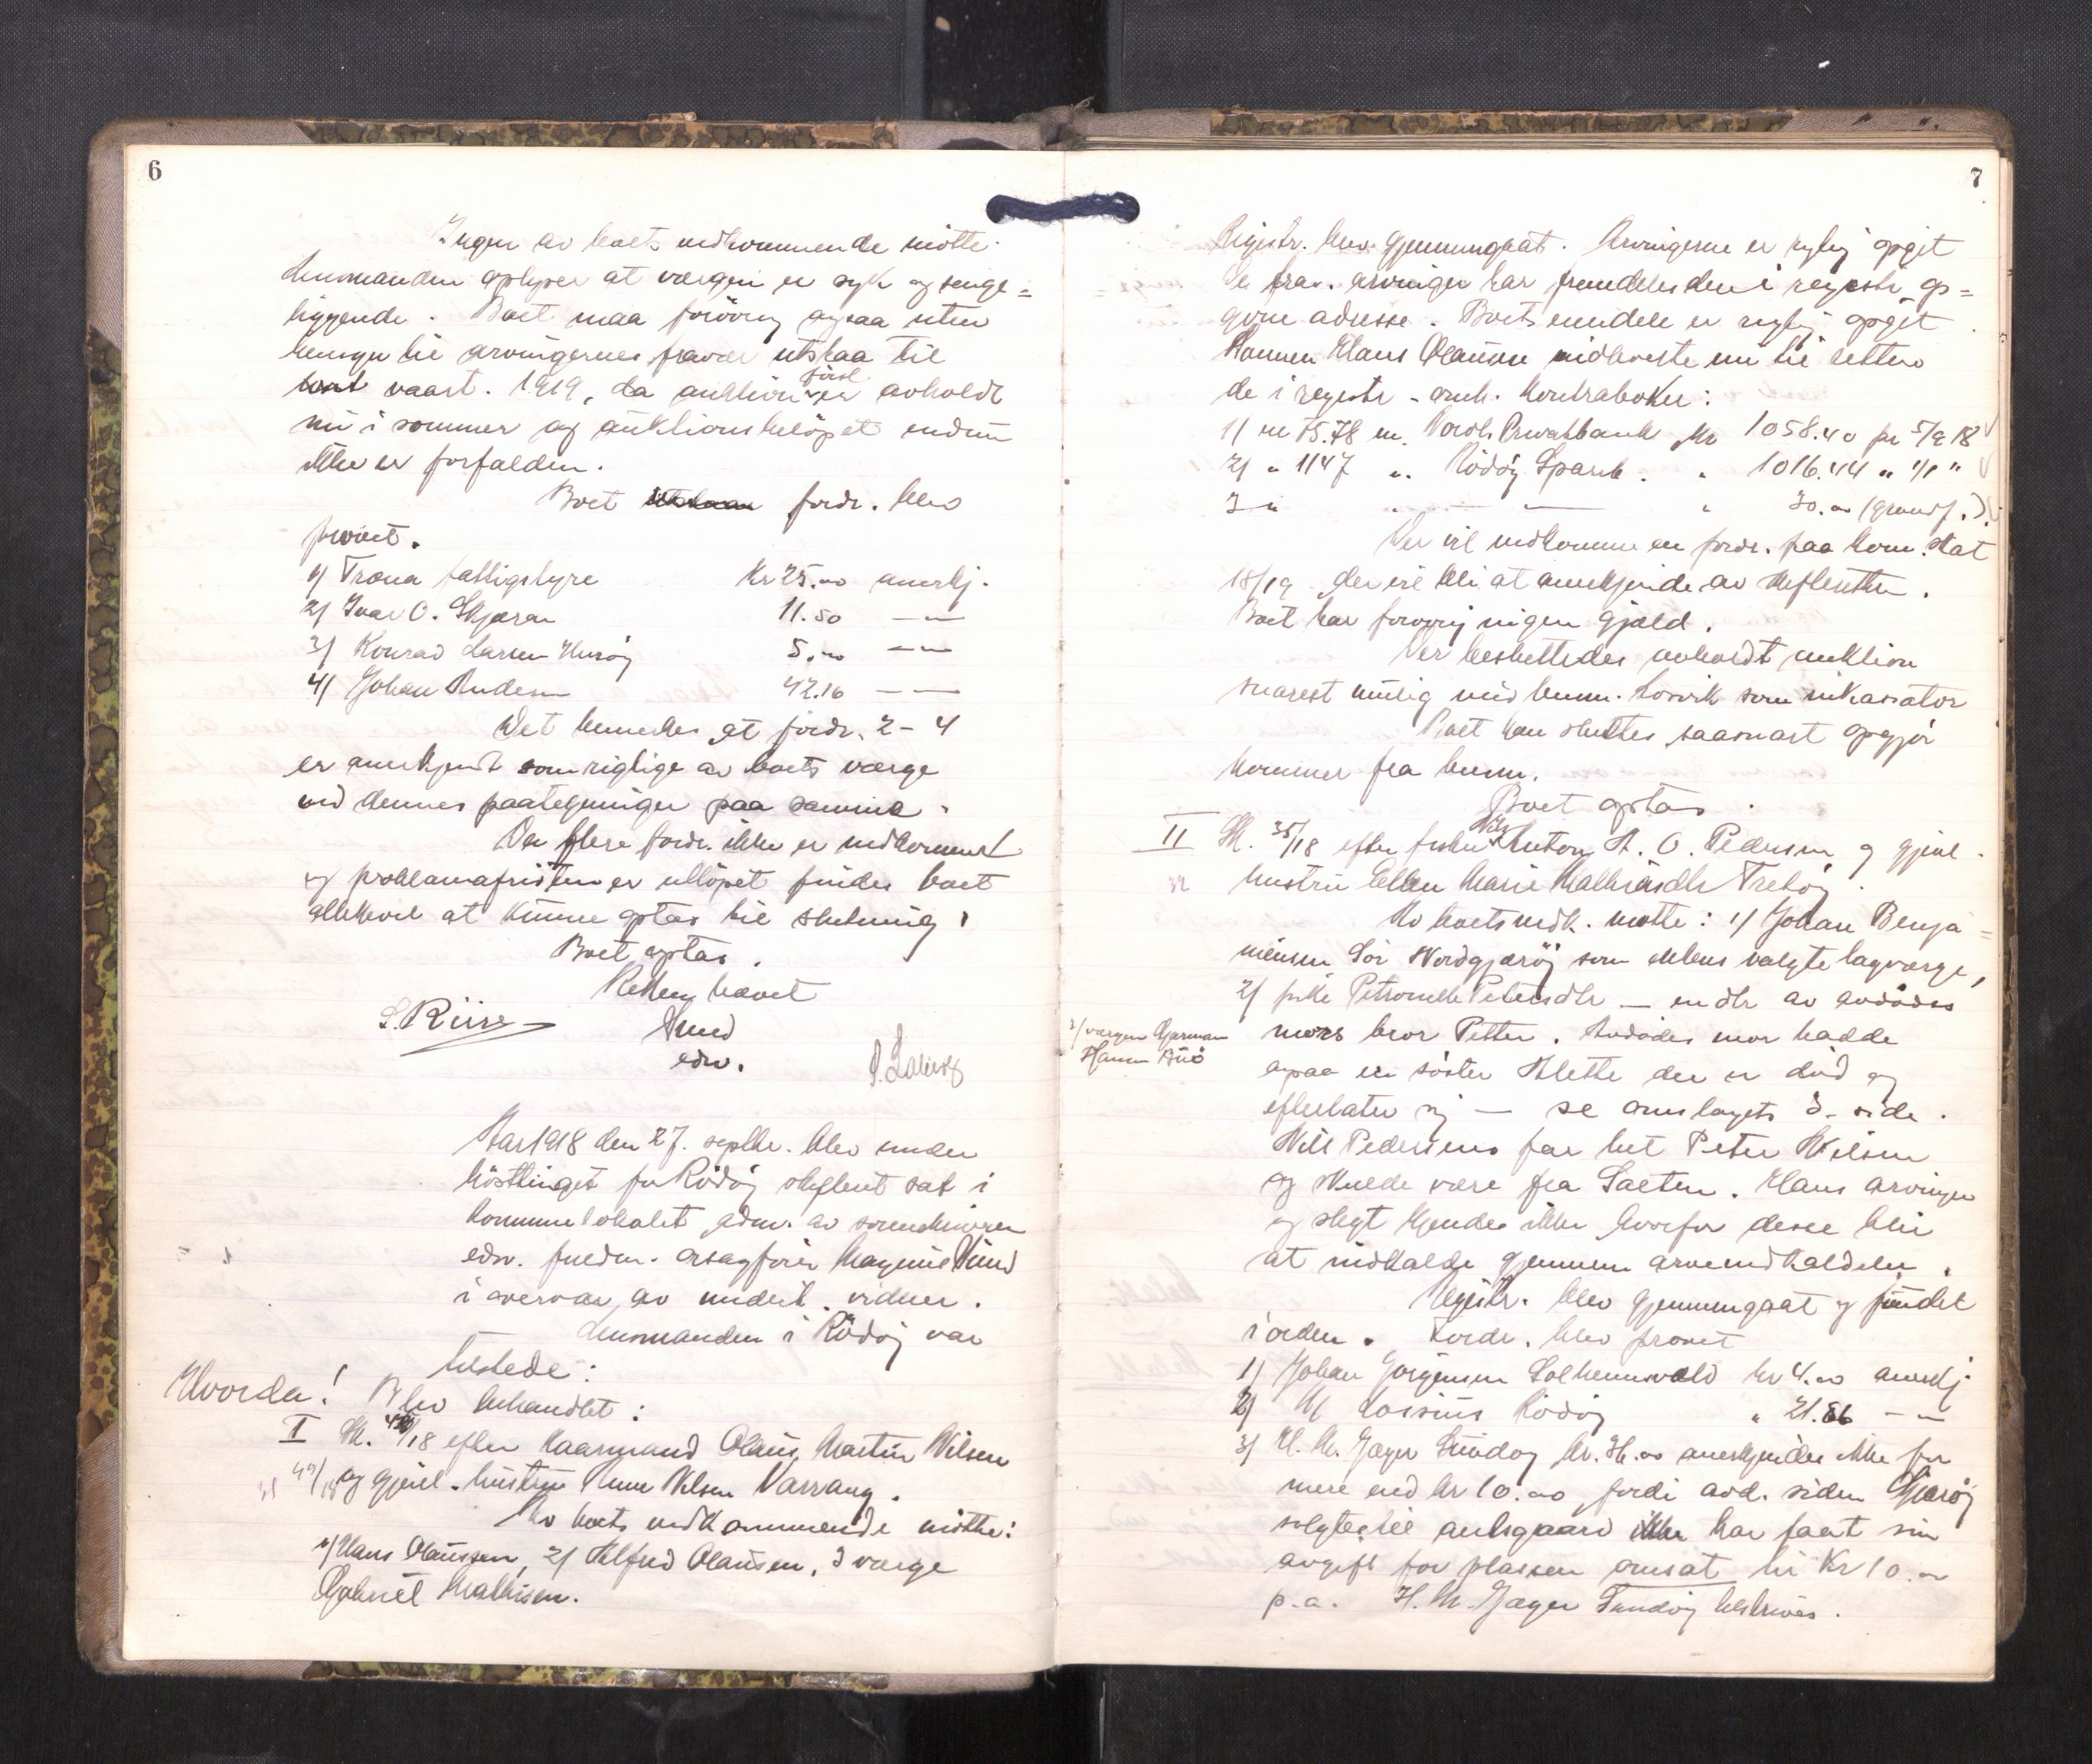 6
Ingen av boets vedkommende mötte.
Lensmanden oplyser at vergen er syk og senge=
liggende. Boet maa forövrig ogsaa uten
hensyn til arvingernes fravær utstaa til
vaart. 1919, da auktion först er avholdt
nu i sommer og auktionsbelöpet endnu
ikke er forfalden.
Boet fordr. blev
prövet.
1) Træna fattigstyre Kr 25.00 anerkj.
2) Ivar O. Skjæran 11.50 — " —
3) Konrad Larsen Husöy 5.00 — " —
4) Johan Andersen 42.16 — " —
Det bemerkes at fordr. 2 - 4
er anerkjendt som rigtige av boets værge
ved dennes paategninger paa samme.
Da flere fordr. ikke er indkommet
og proklamafristen er utlöpet findes boet
allikevel at kunne optas til slutning.
Boet optas.
Retten hævet
S. Riise Lund
edsv.
Aar 1918 den 27. septbr. blev under
hösttinget for Rödöy skifteret sat i
kommunelokalet adm. av sorenskriveren
edsv. fuldm. orsagförer Magnus Lund
i overvær av undert. vidner.
Lensmanden i Rödöy var
tilstede:
Hvorda! Blev behandlet:
I Sk. /18 efter kaarmand Olaus Martin Nilsen
49/18 og gjenl. hustru Anne Nilsen Værrang.
Av boets vedkommende mötte:
1) Hans Olaussen, 2) Alfred Olausen, 3 værge
Gabriel Mathisen.
7
Registr. blev gjennemgaat. Arvingerne er rigtig opgit
De frav. arvinger har fremdeles den i registr. op=
givne adresse. Boets eiendele er rigtig opgit.
Sönnen Hans Olausen indleverte nu til retten
de i registr. omh. kontraböker:
1) nr 75.78 m. Nordl. Privatbank Kr 1058.40 pr 5/9 18
2) " 1147 ". Rödöy Spareb. " 1016.44 " 1/1 "
3 " — " — " 30.00 (grundf.).
Der vil indkomme en fordr. paa kom. skat
18/19 der vil bli at anerkjende av skifteretten.
Boet har forövrig ingen gjæld.
Der besluttedes avholdt auktion
snarest mulig med lensm. Lorvik som inkassator
Boet kan sluttes saasnart opgjör
kommer fra lensm.
Boet optas.
II Sk. 35/18 efter fisker Nils Anton A. O. Pedersen og gjenl.
hustru Ellen Marie Mathiasdtr Treköy.
Av boets vedk. mötte: 1) Johan Benja=
minsen Sör Nordgjæröy som enkens valgte lagværge,
2) pike Petronelle Petersdtr — en dtr av avdödes
3)værgen Hjerman
Hansen Buö
mors bror Petter. Avdödes mor hadde
ogsaa en söster Alette der er död og
efterlater sig — se omslagets 3. side.
Nils Pedersens far het Peter Nilsen
og skulde være fra Salten. Hans arvinger
og slegt kjendes ikke hvorfor desse blir
at indkalde gjennem arveindkaldelse.
Registr. blev gjennemgaat og fundet
i orden. Fordr. blev prövet
1) Johan Jörgensen Selhennvold kr 4.00 anerkj
2) Rödöy " 21.86 — " —
3) H. M. Jæger Sundöy kr. 36.00 anerkjendes ikke for
mere end kr 10.00, fordi avd. siden Gjæröy
solgtes til amtsgaard har faat sin
avgift for plassen ansat til Kr 10.00
p.a. H. M. Jæger Sundöy tilskrives.